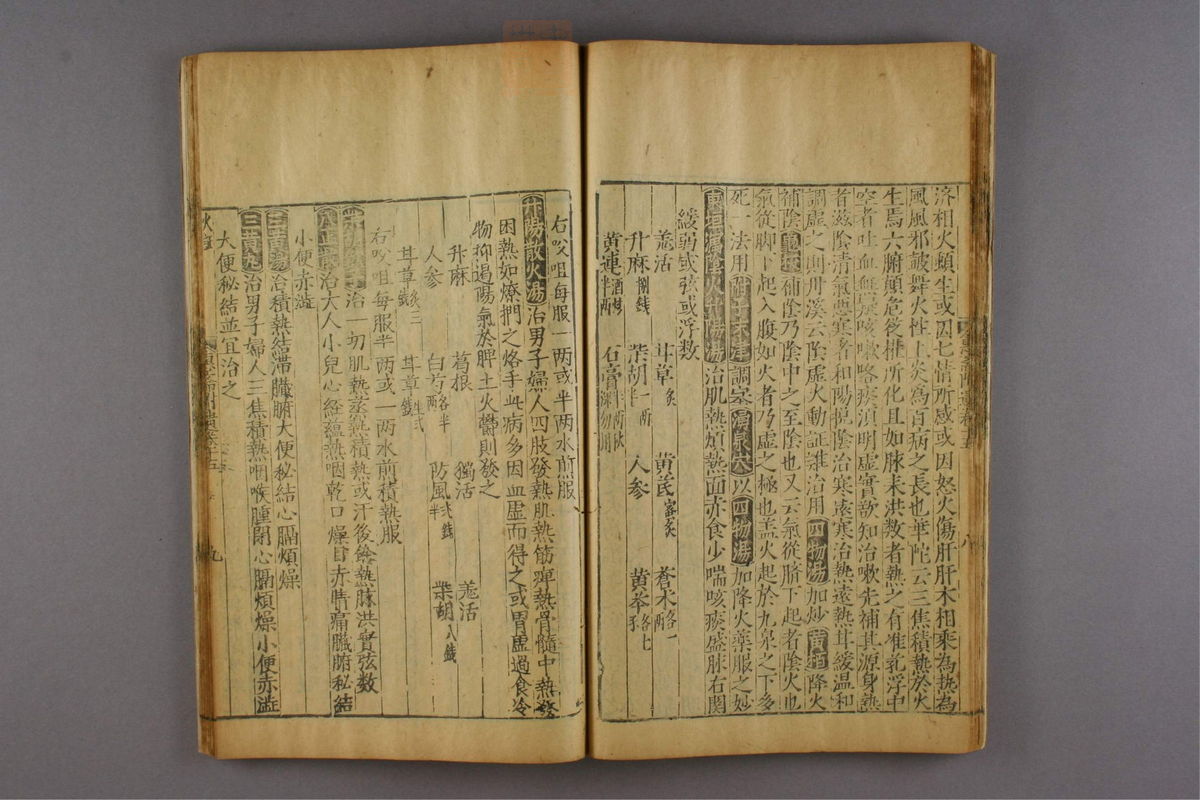 济相火頻生或因七情所感或因怒火傷肝肝木相乘為熱為
風風邪皷舞火性上炎為百病之長也華陀云三焦積熱於火
生焉六腑顛危後推所化且如脉来洪数者熱之有准乳浮中
空者吐血無疑咳嗽咯痰須明虛實歃知治嗽先補其源身熱
者滋陰清氣悪寒者和陽抱陰治寒遠寒治熱遠熱耳緩温和
調虛之則丹溪云陰虛火動証難治用四物湯加炒黄栢降火
補陰龜板補陰乃陰中之至陰也又云氣從臍下起者陰火也
氣從脚下起入腹如火者乃虛之極也盖火起於九泉之下多
死一法用附子末津調塗湧泉穴以四物湯加降火薬服之妙
東垣瀉陰火升陽湯治肌熱煩熱面赤食少喘咳痰盛脉右関
緩弱或弦或浮数
羗活 甘草炙 黄芪蜜炙 蒼术
升麻捌錢 柴胡一两 人参 黄芩
黄連酒炒半两 石膏
右㕮咀每服一两或半两水煎服
升陽散火湯治男子婦人四肢發熱肌熱筋痺熱骨髓中熱發
困熱如燎捫之烙手此病多因血虛而得之或胃虛過食冷
物抑遏陽氣於脾土火欝則發之
升麻 葛根 獨活 羗活
人参 白芍 防風 柴胡八錢
甘草 甘草
右㕮咀每服半两或一两水煎積熱服
治一切肌熱蒸熱積熱或汗後餘熱脉洪實弦数
八正散治大人小児心経蘊熱咽乾口燥目赤睛痛臓腑秘結
小便赤澁
三黄湯治積熱結滞臓腑大便秘結心膈煩燥
三黄丸治男子婦人三焦積熱咽喉腫閉心膈煩燥小便赤澁
大便秘結並宜治之
火症
八
九